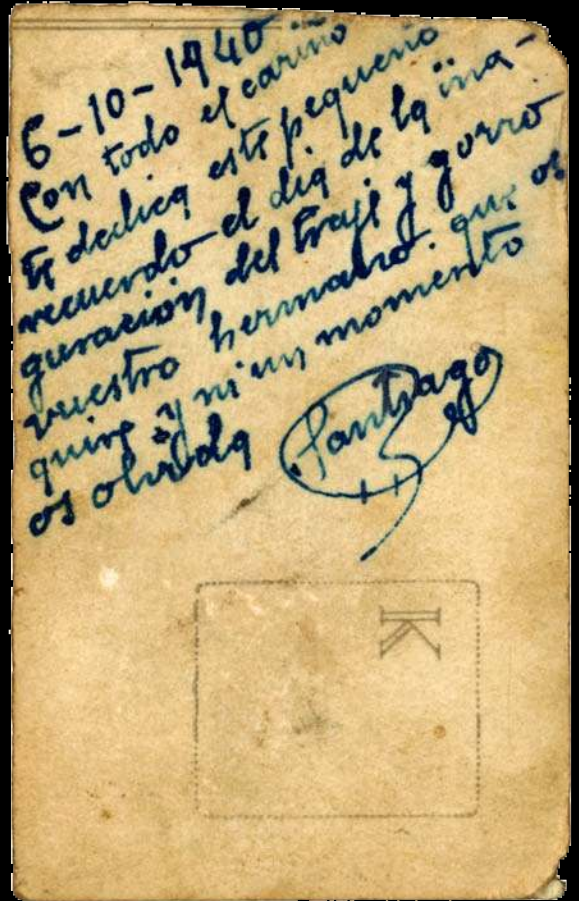 6-10-1940
Con todo el cariño
te dedica este pequeño
recuerdo el dia de la ina-
guracion del traje y gorro
vuestro hermano. que os
quire y ni un momento
os olvida Santiago
K